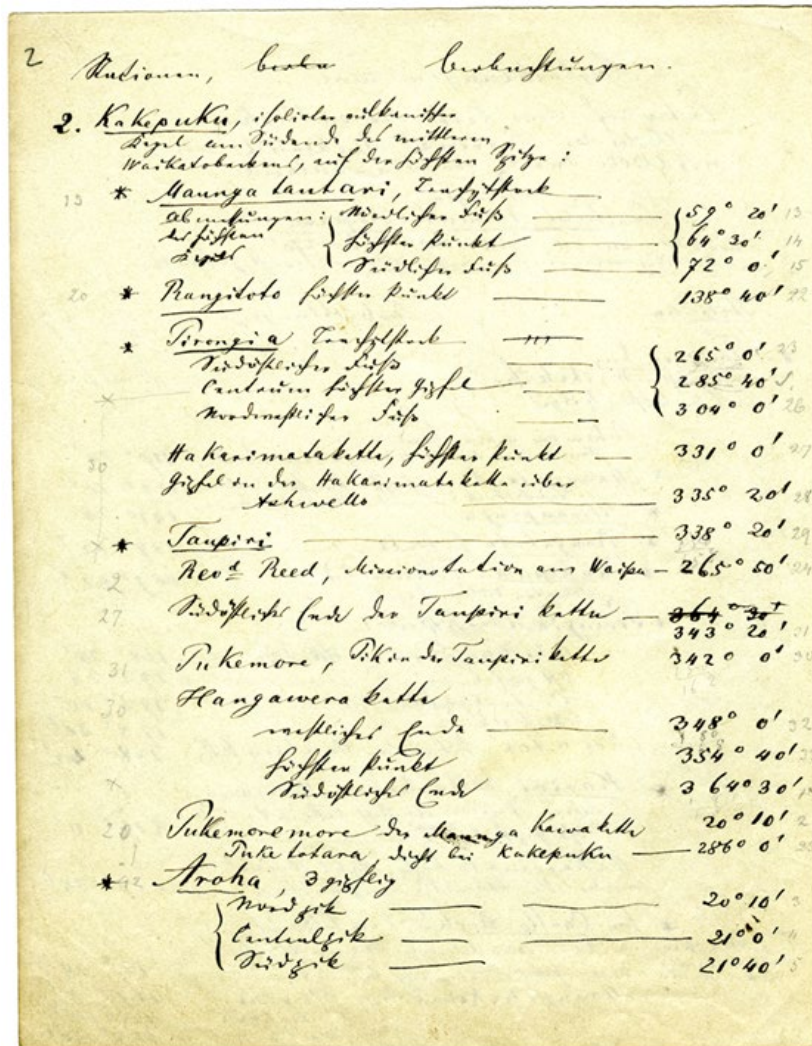 2
Stationen, Beoba Beobachtungen.
2. Kakepuku, isolirter vulkanischer
Kegel am Südende des mittleren
Waikatobeckens, auf der höchsten Spitze:
* Maunga tautari, Trachytstock
Abmessungen: Nördlicher Fuß 59° 20' 13
des höchsten höchster Punkt 64° 30' 14
Kegels Südlicher Fuß 72° 0' 15
20 * Rangitoto höchster Punkt 138° 40' 22
* Pirongia Trachytstock
Südöstlicher Fuß 265° 0' 23
Centrum höchster Gipfel 285° 40'
Nordwestlicher Fuß 304° 0' 26
30 Hakarimatakette, höchster Punkt 331° 0' 27
Gipfel in der Hakarimatakette über
Ashwells 335° 20' 28
* Taupiri 338° 20' 29
2 Revd Reed, Missionstation am Waipa 265° 50' 24
27 Südöstliches Ende der Taupiri kette 364° 30'
343° 20' 31
31 Pukemore, Pik in der Taupirikette 342° 0' 30
30 Hangawera kette
westliches Ende 348° 0' 32
höchster Punkt 354° 40'
Südöstliches Ende 364° 30'
20 Pukemoremore der Maunga Kawakette 20° 10' 2
Puketotara dicht bei Kakepuku 286° 0'
* Aroha, 3 gipflig
Nordpik 20° 10' 3
Centralpik 21° 0' 4
Südpik 21° 40' 5